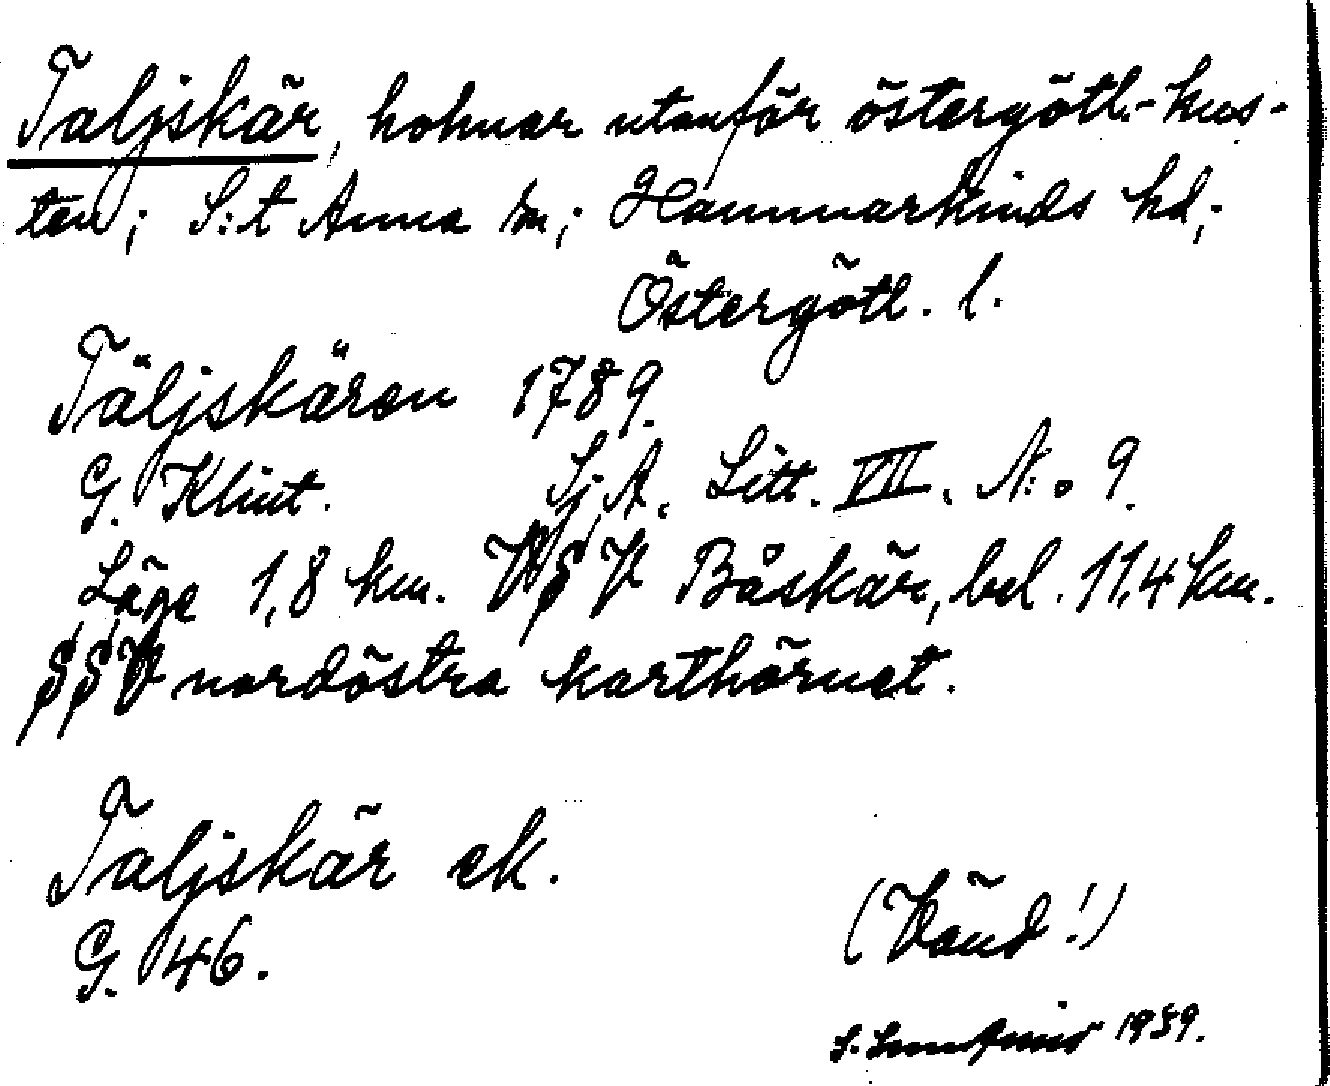 Taljskär, holmar utanför östergötl.-kus-
ten; S:t Anna sn; Hammarkinds hd;
Östergötl. l.
Täljskären 1789.
G. Klint. Sj.A. Litt. VII. N:o 9.
Läge 1,8 km. VSV Båskär, bel. 11,4 km.
SSV nordöstra karthörnet.
Taljskär ek.
G. 46.
(Vänd!)
S. 1939.